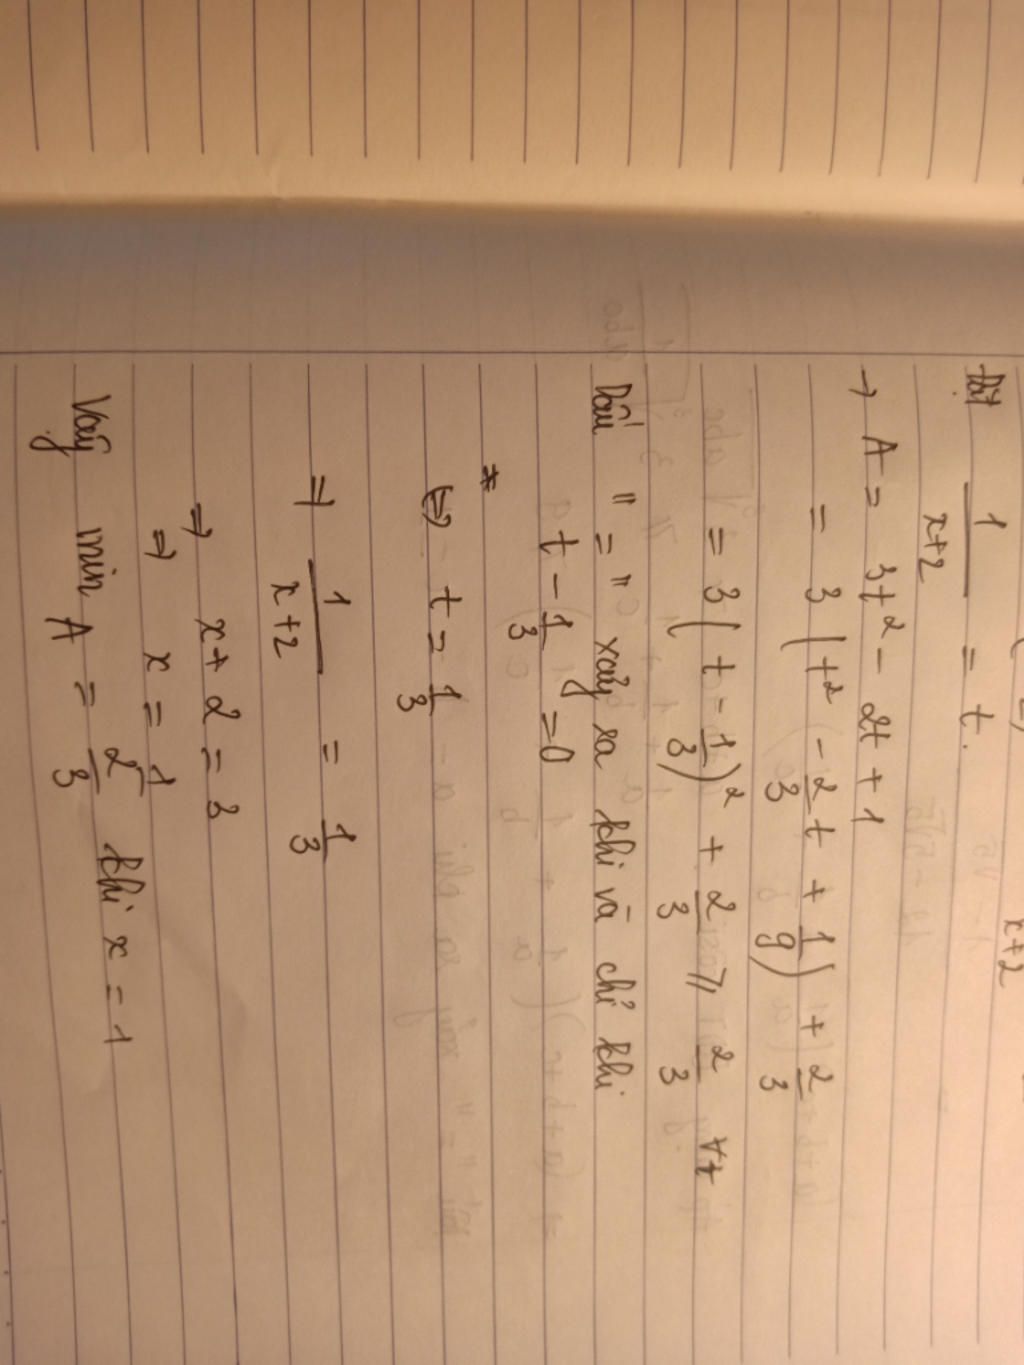 x+2
Đặt 1/(x+2) = t.
→ A = 3t² - 2t + 1
= 3(t² - 2/3 t + 1/9) + 2/3
= 3(t - 1/3)² + 2/3 ⩾ 2/3 ∀t
Dấu "=" xảy ra khi và chỉ khi
t - 1/3 = 0
⇔ t = 1/3
⇒ 1/(x+2) = 1/3
⇒ x + 2 = 3
⇒ x = 1
Vậy min A = 2/3 khi x = 1